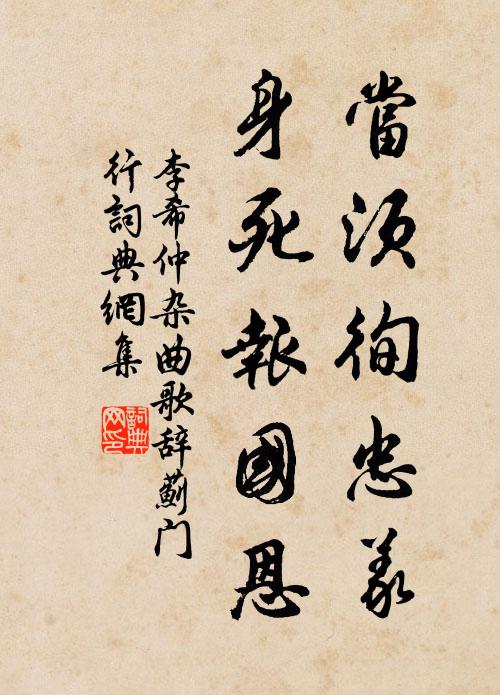 當須徇忠義
身死報國恩
李希仲杂曲歌辞薊门
行詞典網集
詞典网印